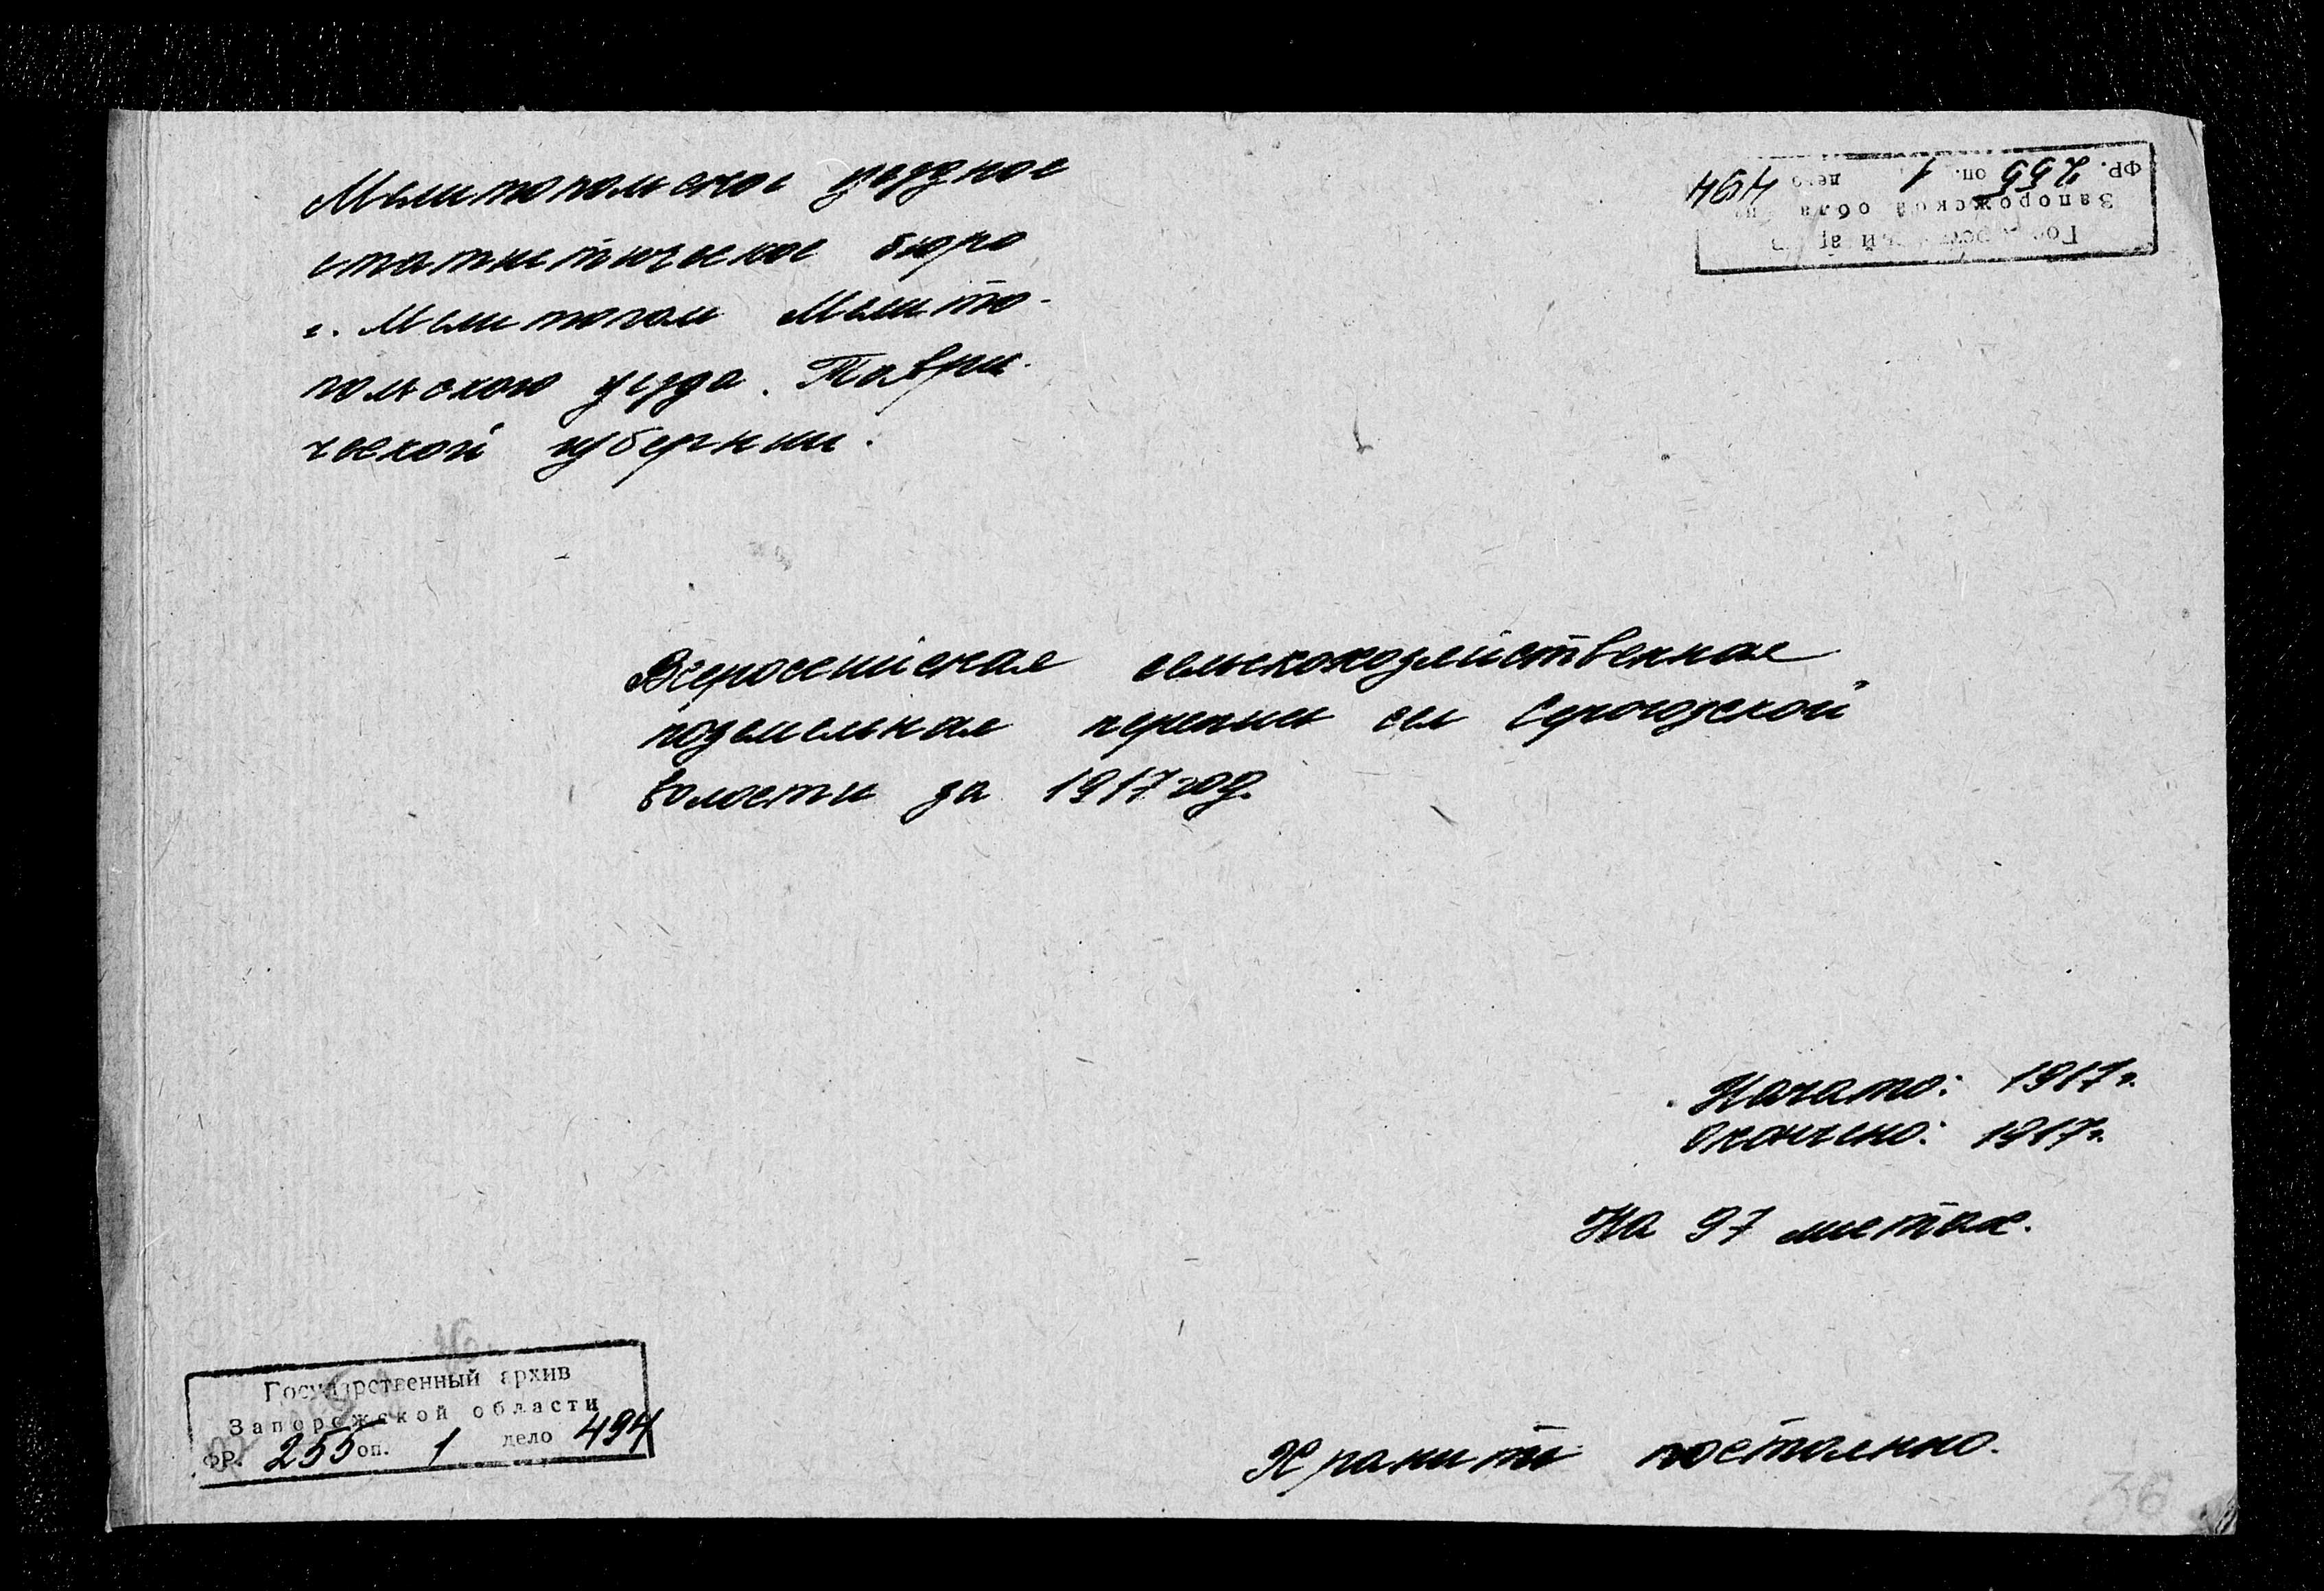 Мелитопольское уездное
статистическое бюро
г. Мелитополь Мелито-
польского уезда. Таври-
ческой губернии.
Государственный архив
Запорожская область
ФР. 255 оп. 1 дело 494
Всероссийская сельскохозяйственная
поземельная перепись сел Серогозской
волости за 1917 год.
Начато: 1917г.
Окончено: 1917г.
На 97 листах.
Государственный архив
Запорожской области
ФР. 255 оп. 1 дело 494
Хранить постоянно.
36